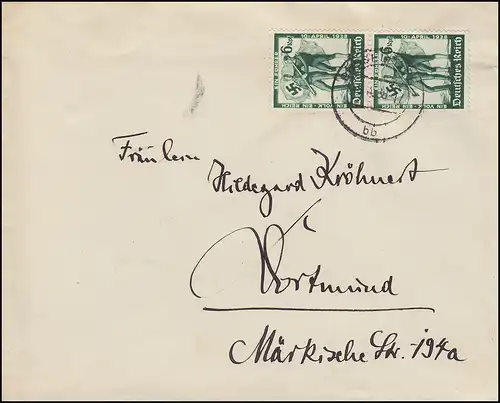 10. APRIL 1938 10. APRIL 1938
6 6
Deutsches Reich Deutsches Reich
EIN FÜHRER EIN FÜHRER
EIN VOLK EIN REICH EIN VOLK EIN REICH
bb
Fräulein
Hildegard Kröhnert
Dortmund
Märkische Str. 194a